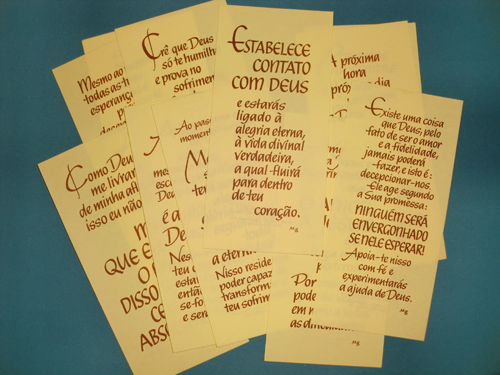 Mesmo ao
todas as
esperanç
Crê que Deus
só te humilh
e prova no
sofrimen
ESTABELECE
CONTATO
COM DEUS
e estarás
ligado à
alegria eterna,
à vida divinal
verdadeira,
a qual fluirá
para dentro
de teu
coração.
MB
A próxima
hora
dia
Existe uma coisa
que Deus, pelo
fato de ser o amor
e a fidelidade,
jamais poderá
fazer, e isto é:
decepcionar-nos.
Ele age segundo
a Sua promessa:
NINGUÉM SERÁ
ENVERGONHADO
SE NELE ESPERAR!
Apoia-te nisso
com fé e
experimentarás
a ajuda de Deus.
MB
Ao pass
moment
Como Deu
me livrar
de minha afl
isso eu não
QUE E
O
DISSO
CE
ABSO
Nes
teu
esta
então
se-fo
e sera
a eterna
Nisso reside
poder capaz
transform
teu sofrim
Por
pode
em n